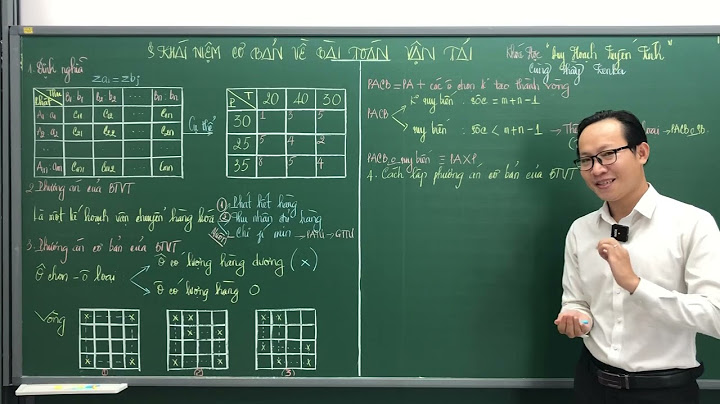 § KHÁI NIỆM CƠ BẢN VỀ BÀI TOÁN VẬN TẢI
Khóa Học "Quy Hoạch Tuyến Tính"
Cùng Thầy
1. Định nghĩa
Σai = Σbj
Thu Phát B1 b1 B2 b2 ... Bn bn
A1 a1 C11 C12 ... C1n
A2 a2 C21 C22 ... C2n
... ... ... ... ...
Am am Cm1 Cm2 ... Cmn
Cụ thể
P T 20 40 30
30 1 3 5
25 5 4 2
35 8 5 4
2. Phương án của BTVT
Là một kế hoạch vận chuyển hàng hoá
① Phát hết hàng
② Thu nhận đủ hàng
Chi phí min → PATƯ → GTTƯ
3. Phương án cơ bản của BTVT
Ô chọn - ô loại
Ô có lượng hàng dương (x)
Ô có lượng hàng 0
Vòng
x x
x x
(1)
x x
x x
x x
(2)
x x
x x
(3)
PACB = PA + các ô chọn k tạo thành vòng
PACB
k suy biến : số ô c = m+n-1
suy biến : số ô c < m+n-1 → loại → PACB
PACB suy biến ≡ PAXP
4. Cách lập phương án cơ bản của BTVT